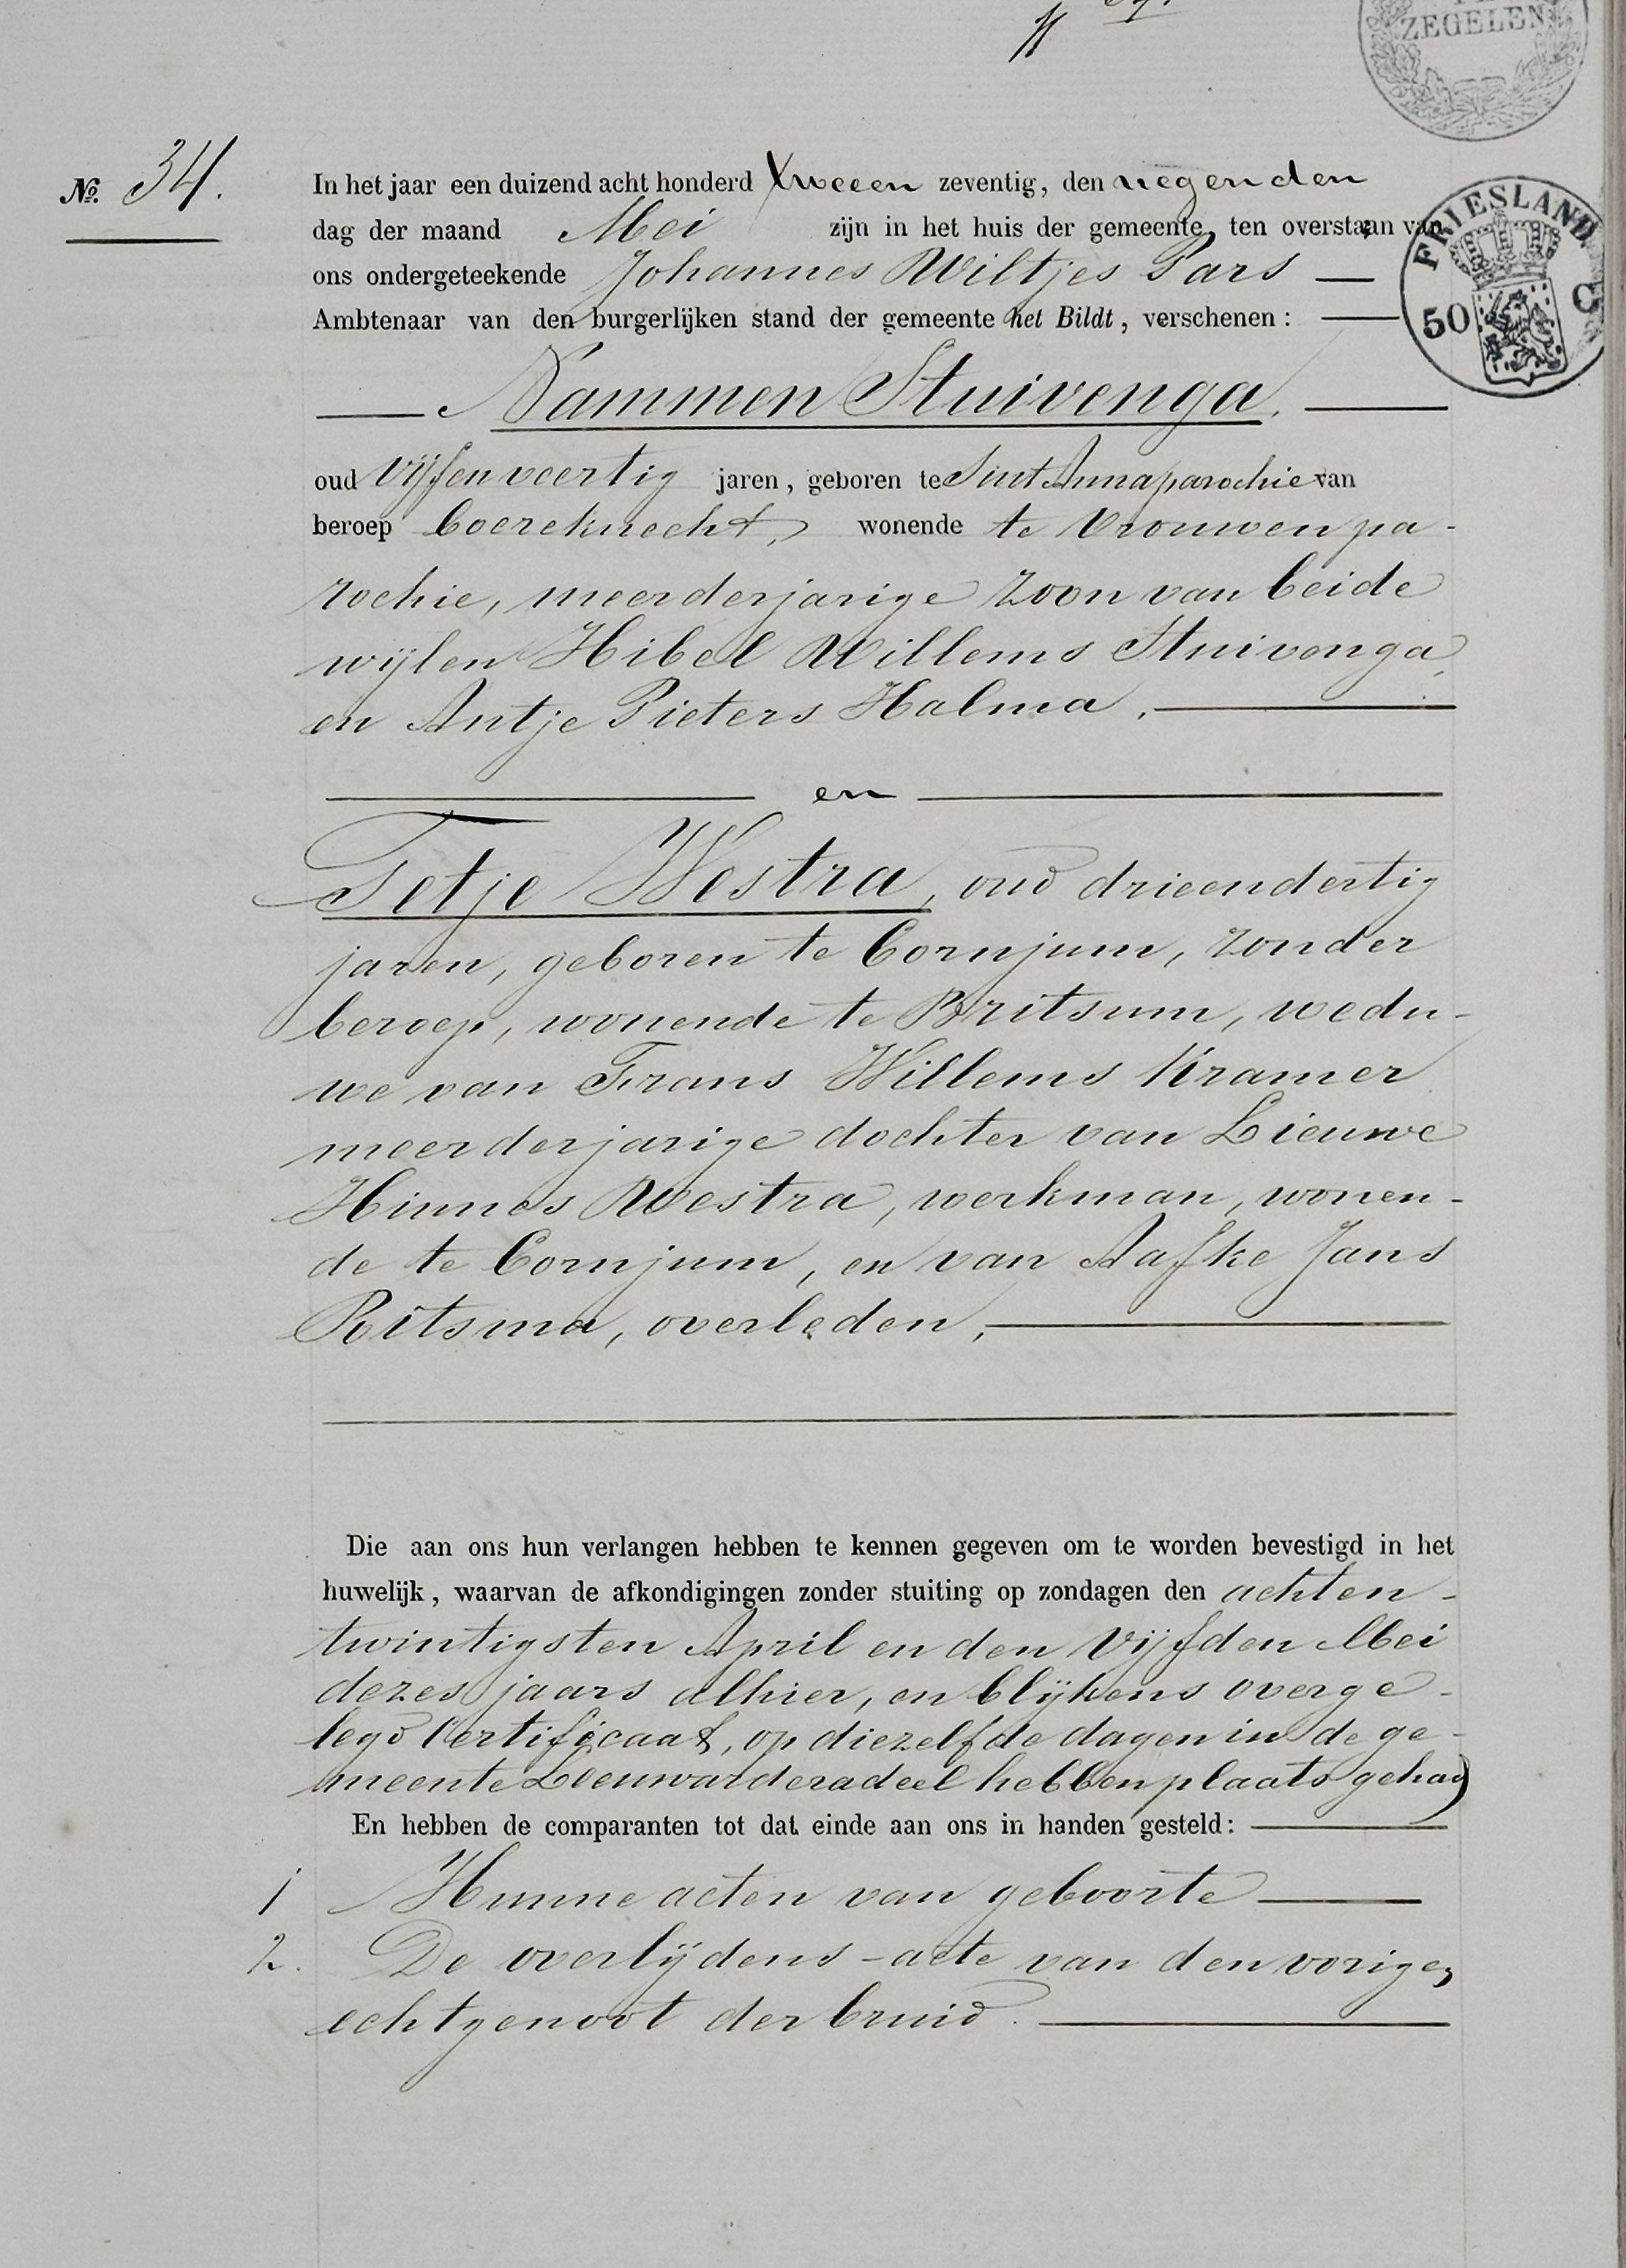 ZEGELEN
No. 34.
In het jaar een duizend acht honderd tweeen zeventig, den negenden
dag der maand Mei zijn in het huis der gemeente, ten overstaan van
ons ondergeteekende Johannes Wiltjes Pars —
Ambtenaar van den burgerlijken stand der gemeente het Bildt, verschenen: —
FRIESLAND
50 C
— Nammen Stuivenga. —
oud vijfenveertig jaren, geboren te Sint Annaparochie van
beroep boereknecht, wonende te Vrouwenpa-
rochie, meerderjarige zoon van beide
wijlen Hibel Willems Stuivenga
en Antje Pieters Halma, —
— en —
Tetje Westra, oud drieendertig
jaren, geboren te Cornjum, zonder
beroep, wonende te Britsum, wedu-
we van Frans Willems Kramer
meerderjarige dochter van Lieuwe
Hinnes Westra, werkman, wonen-
de te Cornjum, en van Aafke Jans
Ritsma, overleden, —
Die aan ons hun verlangen hebben te kennen gegeven om te worden bevestigd in het
huwelijk, waarvan de afkondigingen zonder stuiting op zondagen den achten-
twintigsten April en den vijfden Mei
dezes jaars alhier, en blijkens overge-
legd Certificaat, op diezelfde dagen in de ge-
meente Leeuwarderadeel hebben plaats gehad
En hebben de comparanten tot dat einde aan ons in handen gesteld: —
1 Hunne acten van geboorte —
2. De overlijdens-acte van den vorigen
echtgenoot der bruid. —